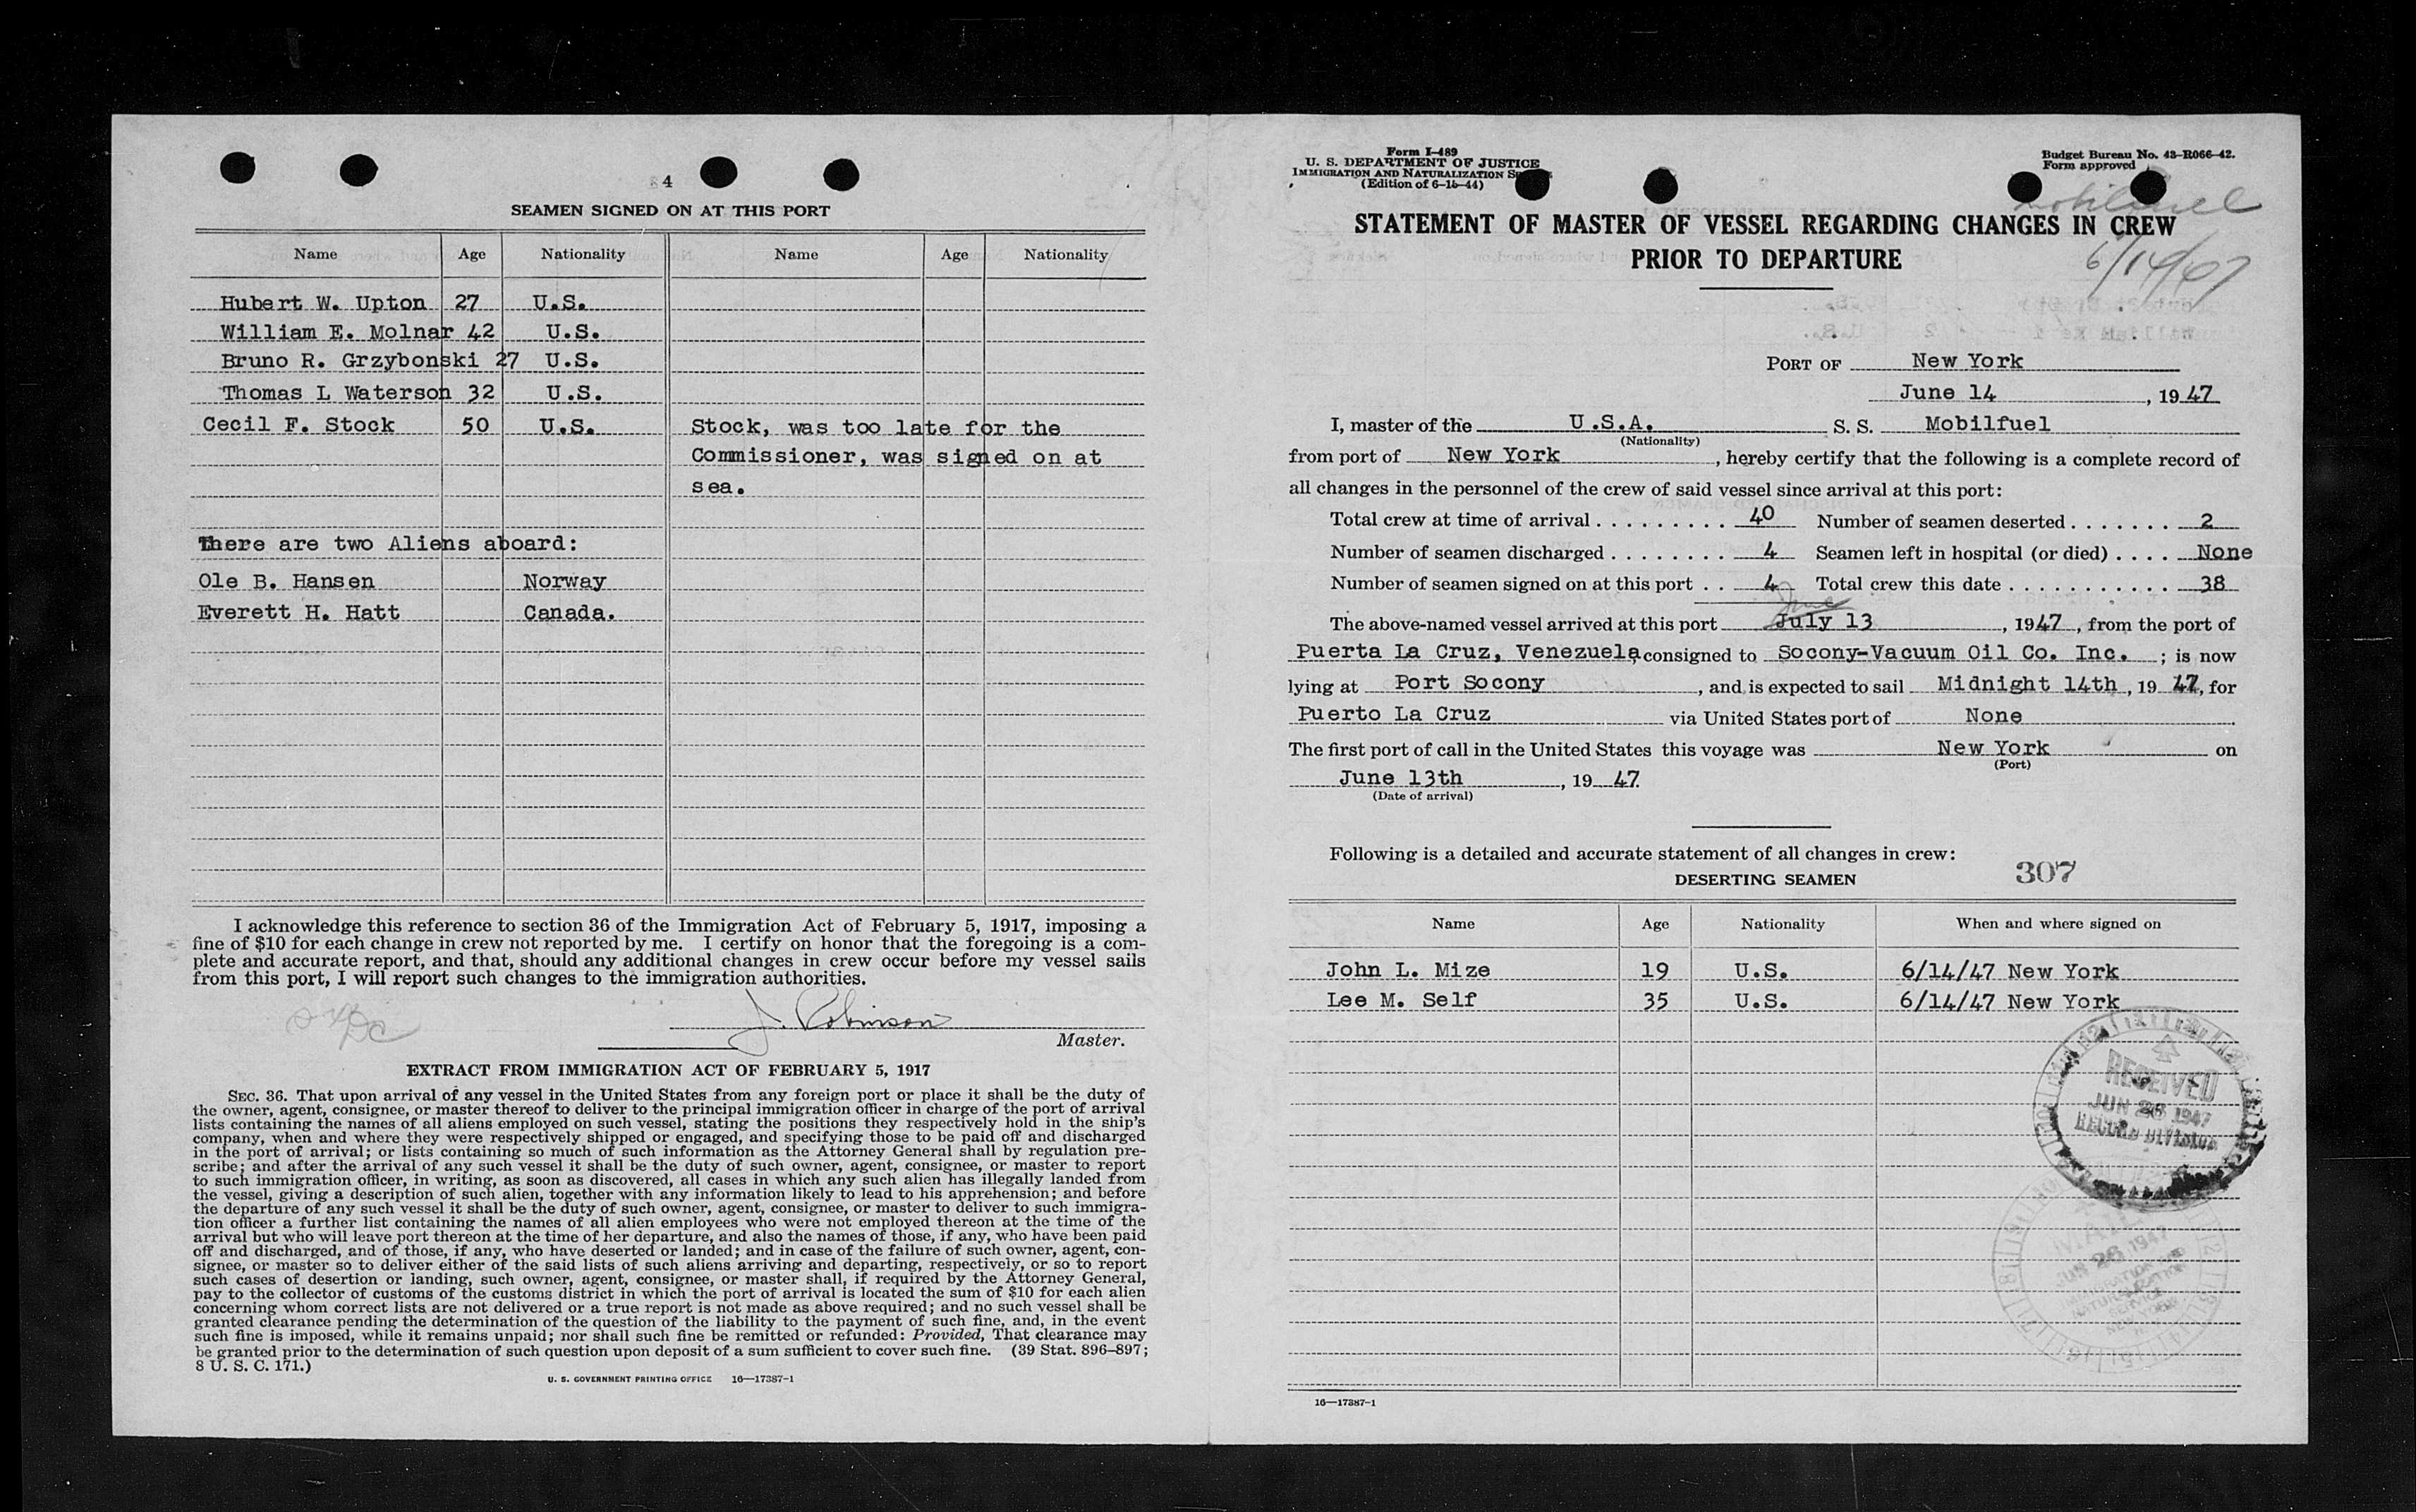 4
SEAMEN SIGNED ON AT THIS PORT
Name Age Nationality Name Age Nationality
Hubert W. Upton 27 U.S.
William E. Molnar 42 U.S.
Bruno R. Grzybonski 27 U.S.
Thomas L Waterson 32 U.S.
Cecil F. Stock 50 U.S. Stock, was too late for the
Commissioner, was signed on at
sea.
There are two Aliens aboard:
Ole B. Hansen Norway
Everett H. Hatt Canada.
I acknowledge this reference to section 36 of the Immigration Act of February 5, 1917, imposing a
fine of $10 for each change in crew not reported by me. I certify on honor that the foregoing is a com-
plete and accurate report, and that, should any additional changes in crew occur before my vessel sails
from this port, I will report such changes to the immigration authorities.
J. Robinson
Master.
EXTRACT FROM IMMIGRATION ACT OF FEBRUARY 5, 1917
SEC. 36. That upon arrival of any vessel in the United States from any foreign port or place it shall be the duty of
the owner, agent, consignee, or master thereof to deliver to the principal immigration officer in charge of the port of arrival
lists containing the names of all aliens employed on such vessel, stating the positions they respectively hold in the ship's
company, when and where they were respectively shipped or engaged, and specifying those to be paid off and discharged
in the port of arrival; or lists containing so much of such information as the Attorney General shall by regulation pre-
scribe; and after the arrival of any such vessel it shall be the duty of such owner, agent, consignee, or master to report
to such immigration officer, in writing, as soon as discovered, all cases in which any such alien has illegally landed from
the vessel, giving a description of such alien, together with any information likely to lead to his apprehension; and before
the departure of any such vessel it shall be the duty of such owner, agent, consignee, or master to deliver to such immigra-
tion officer a further list containing the names of all alien employees who were not employed thereon at the time of the
arrival but who will leave port thereon at the time of her departure, and also the names of those, if any, who have been paid
off and discharged, and of those, if any, who have deserted or landed; and in case of the failure of such owner, agent, con-
signee, or master so to deliver either of the said lists of such aliens arriving and departing, respectively, or so to report
such cases of desertion or landing, such owner, agent, consignee, or master shall, if required by the Attorney General,
pay to the collector of customs of the customs district in which the port of arrival is located the sum of $10 for each alien
concerning whom correct lists are not delivered or a true report is not made as above required; and no such vessel shall be
granted clearance pending the determination of the question of the liability to the payment of such fine, and, in the event
such fine is imposed, while it remains unpaid; nor shall such fine be remitted or refunded: Provided, That clearance may
be granted prior to the determination of such question upon deposit of a sum sufficient to cover such fine. (39 Stat. 896–897;
8 U. S. C. 171.)
U. S. GOVERNMENT PRINTING OFFICE 16—17387-1
Form I-489
U. S. DEPARTMENT OF JUSTICE
IMMIGRATION AND NATURALIZATION
(Edition of 6-15-44)
Budget Bureau No. 43-R066-42.
Form approved
Mobilfuel
6/14/47
STATEMENT OF MASTER OF VESSEL REGARDING CHANGES IN CREW
PRIOR TO DEPARTURE
PORT OF New York
June 14, 1947
I, master of the U.S.A. S. S. Mobilfuel
(Nationality)
from port of New York, hereby certify that the following is a complete record of
all changes in the personnel of the crew of said vessel since arrival at this port:
Total crew at time of arrival . . . . . . . . . 40 Number of seamen deserted . . . . . . . 2
Number of seamen discharged . . . . . . . . 4 Seamen left in hospital (or died) . . . . None
Number of seamen signed on at this port . . 4 Total crew this date . . . . . . . . . . . 38
June
The above-named vessel arrived at this port July 13, 1947, from the port of
Puerta La Cruz, Venezuela, consigned to Socony-Vacuum Oil Co. Inc. ; is now
lying at Port Socony, and is expected to sail Midnight 14th, 19 47, for
Puerto La Cruz via United States port of None
The first port of call in the United States this voyage was New York on
(Port)
June 13th, 19 47.
(Date of arrival)
Following is a detailed and accurate statement of all changes in crew:
307
DESERTING SEAMEN
Name Age Nationality When and where signed on
John L. Mize 19 U.S. 6/14/47 New York
Lee M. Self 35 U.S. 6/14/47 New York
RECEIVED
JUN 26 1947
RECORD DIVISION
JUN 26 1947
16—17387-1